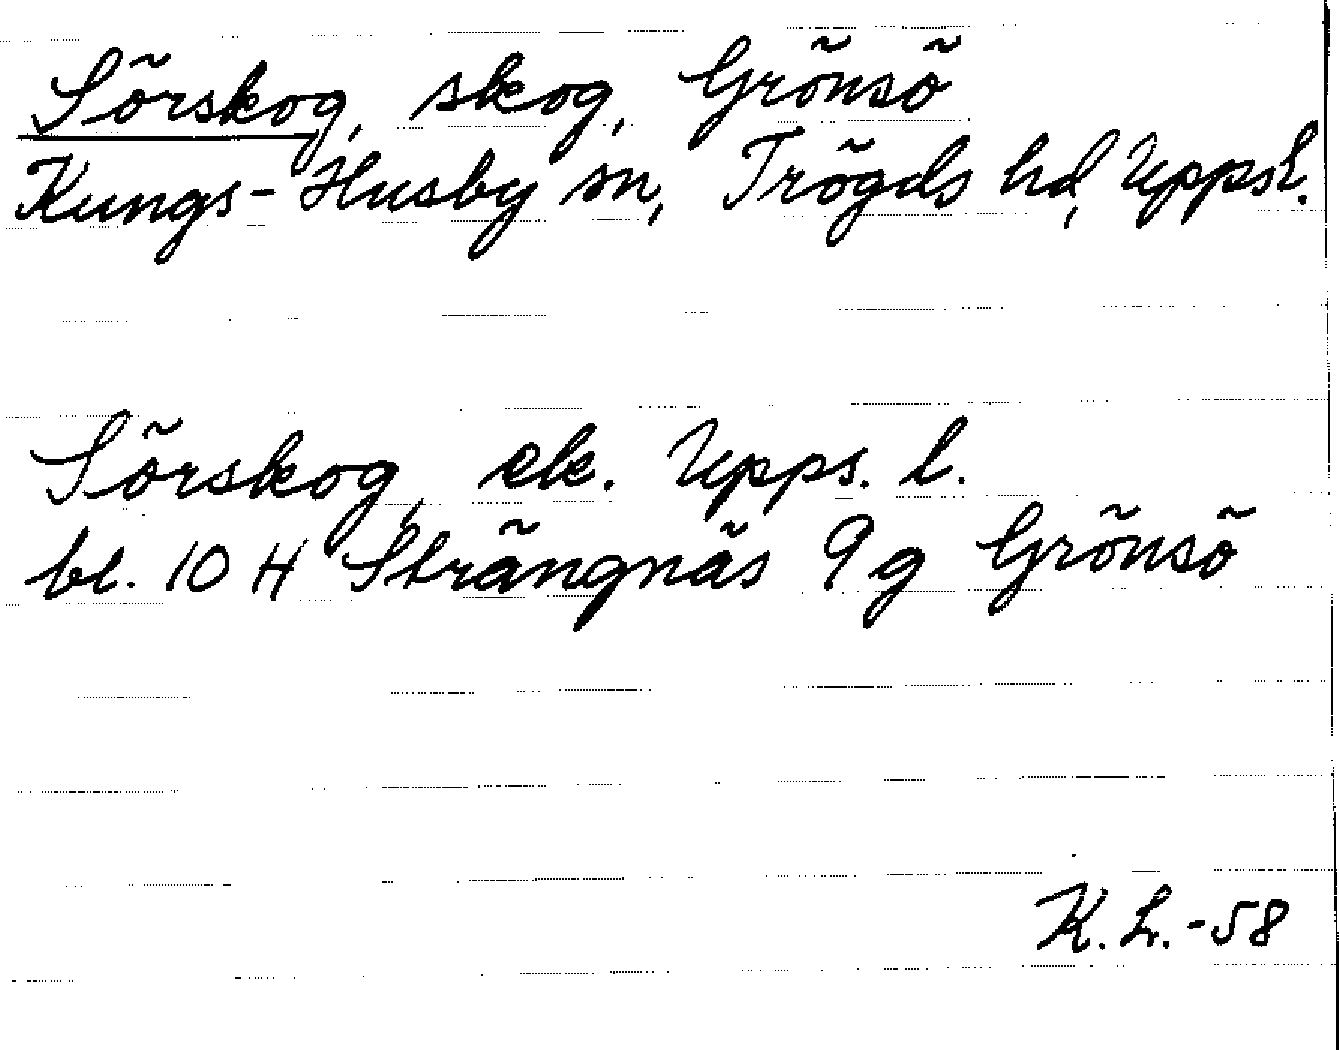 Sörskog, skog, Grönsö
Kungs-Husby sn, Trögds hd, Uppsl.
Sörskog, ek. Upps. l.
bl. 10 H Strängnäs 9g Grönsö
K. L. -58